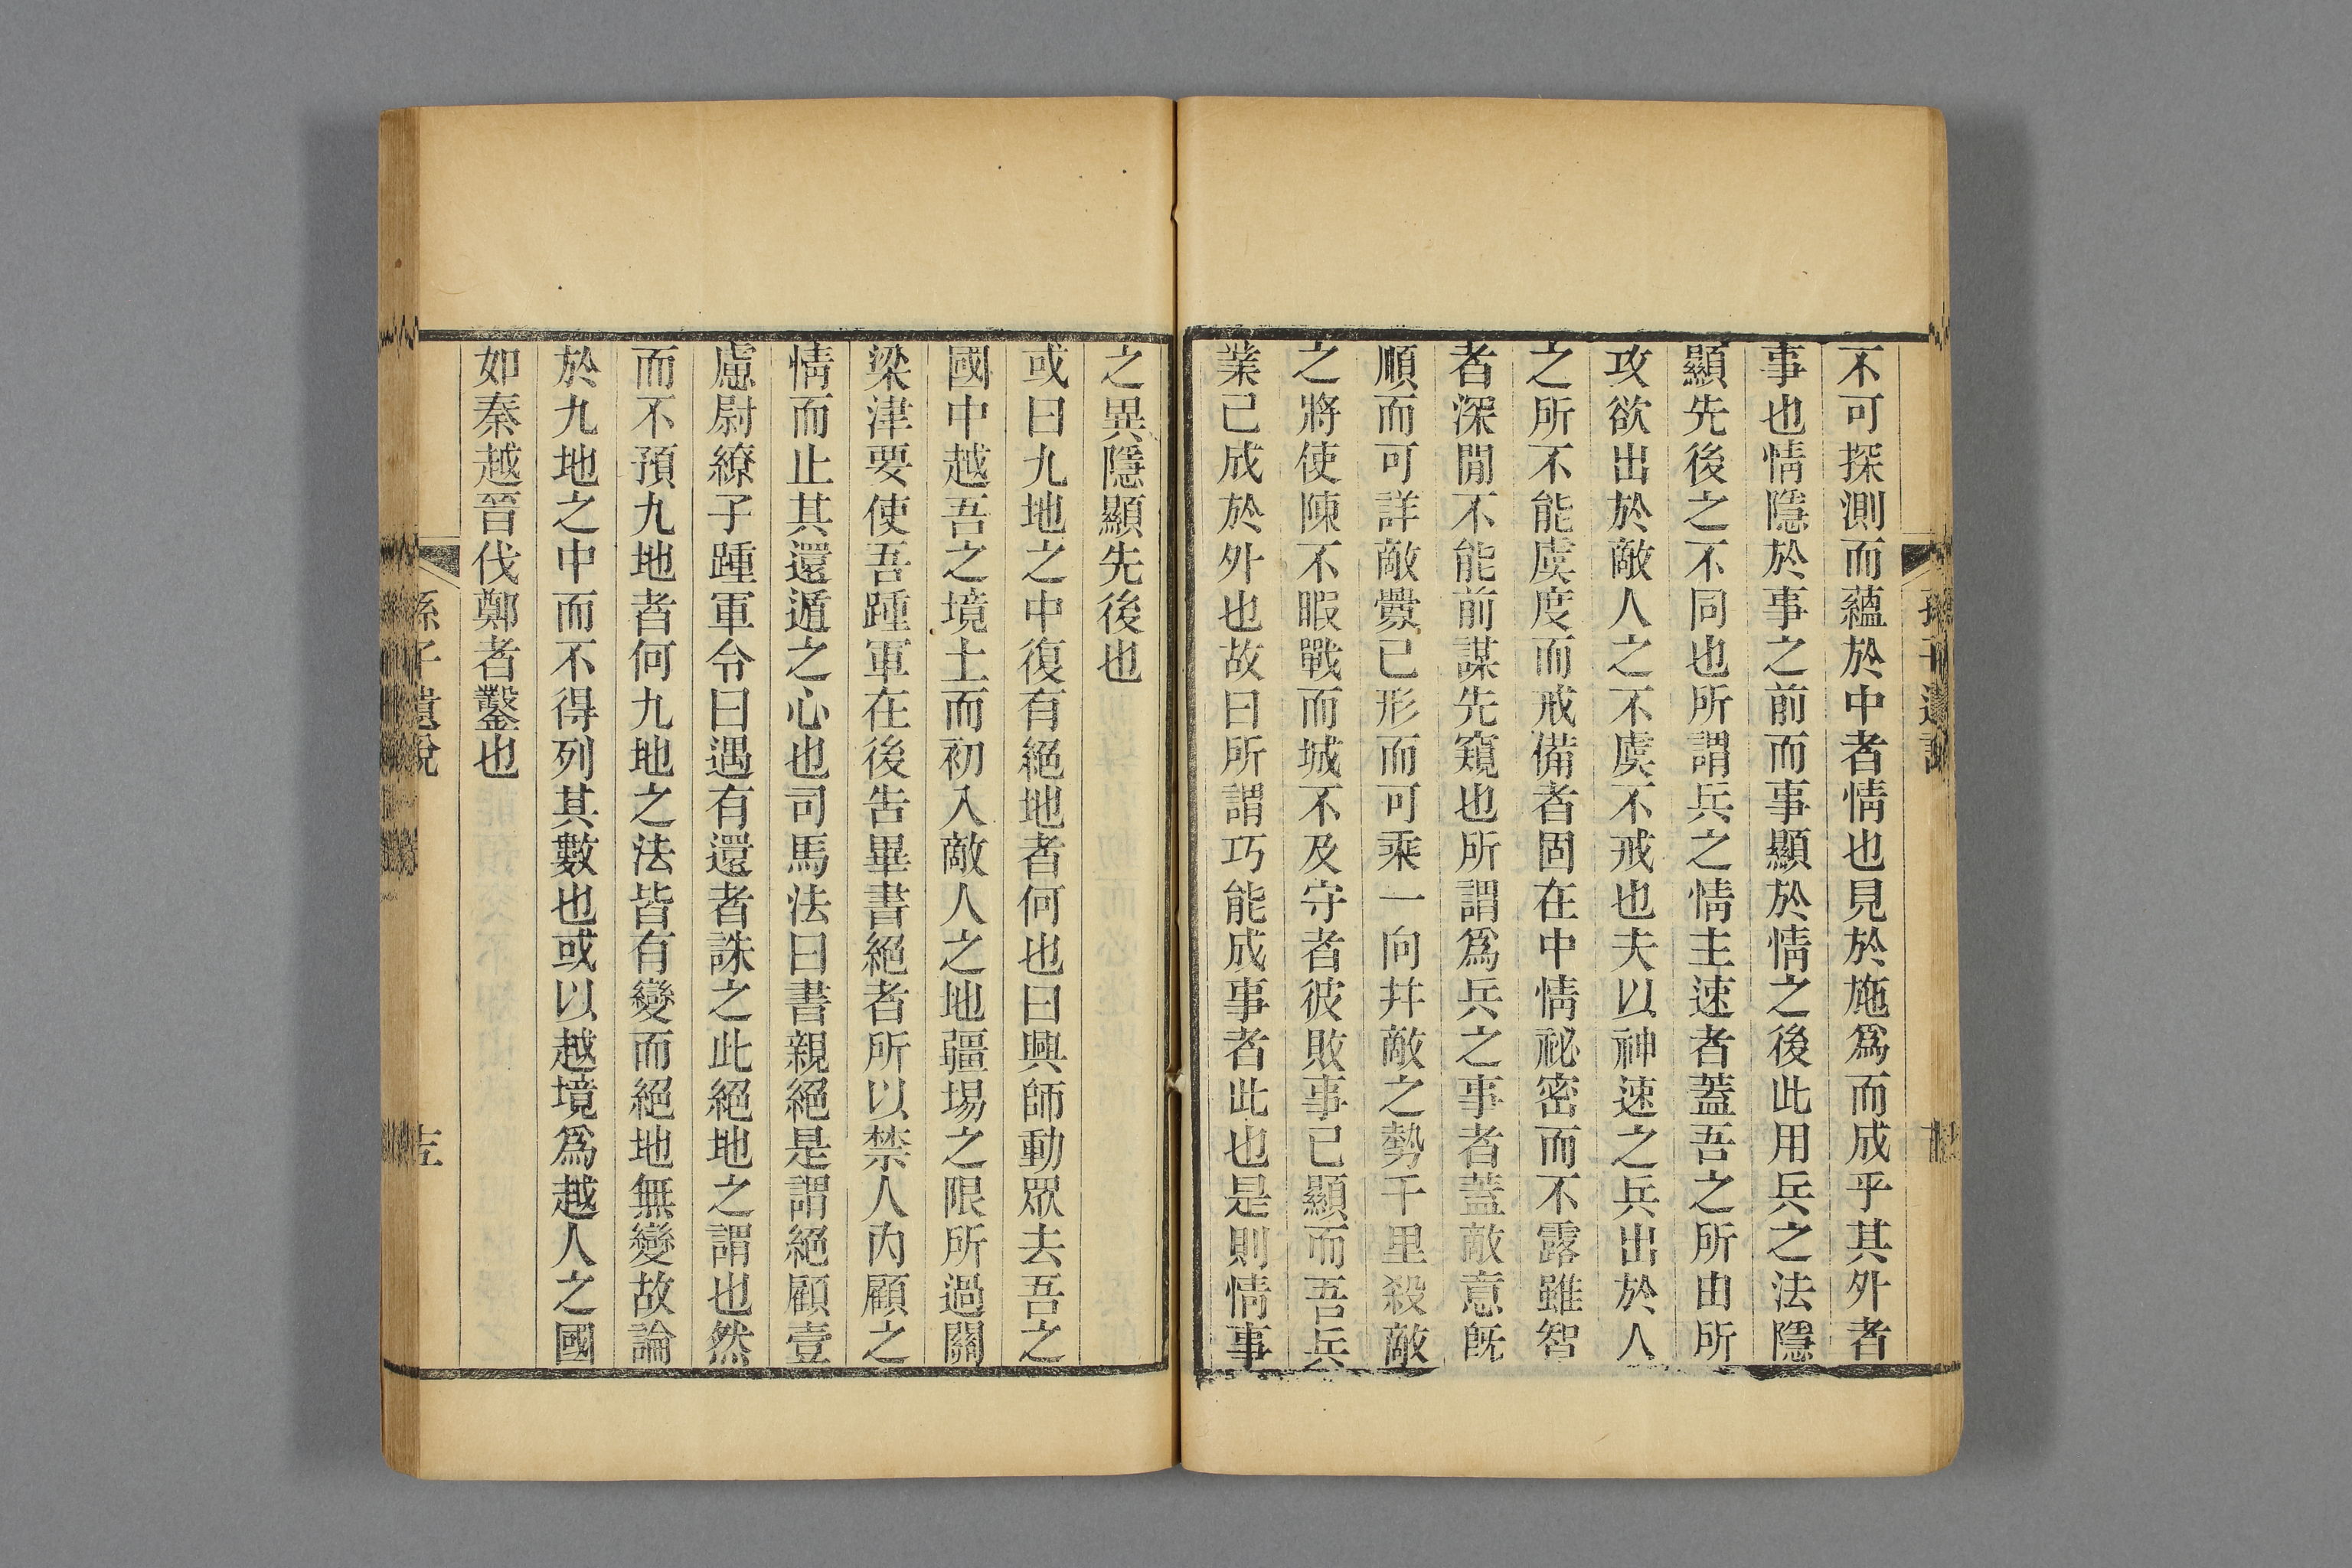 不可探測而蘊於中者情也見於施爲而成乎其外者
事也情隱於事之前而事顯於情之後此用兵之法隱
顯先後之不同也所謂兵之情主速者蓋吾之所由所
攻欲出於敵人之不虞不戒也夫以神速之兵出於人
之所不能虞度而戒備者固在中情祕密而不露雖智
者深閒不能前謀先窺也所謂爲兵之事者蓋敵意旣
順而可詳敵釁已形而可乘一向幷敵之勢千里殺敵
之將使陳不暇戰而城不及守者彼敗事已顯而吾兵
業已成於外也故曰所謂巧能成事者此也是則情事
之異隱顯先後也
或曰九地之中復有絕地者何也曰興師動眾去吾之
國中越吾之境土而初入敵人之地疆埸之限所過關
梁津要使吾踵軍在後告畢書絕者所以禁人內顧之
情而止其還遁之心也司馬法曰書親絕是謂絕顧壹
慮尉繚子踵軍令曰遇有還者誅之此絕地之謂也然
而不預九地者何九地之法皆有變而絕地無變故論
於九地之中而不得列其數也或以越境爲越人之國
如秦越晉伐鄭者鑿也
孫子遺說